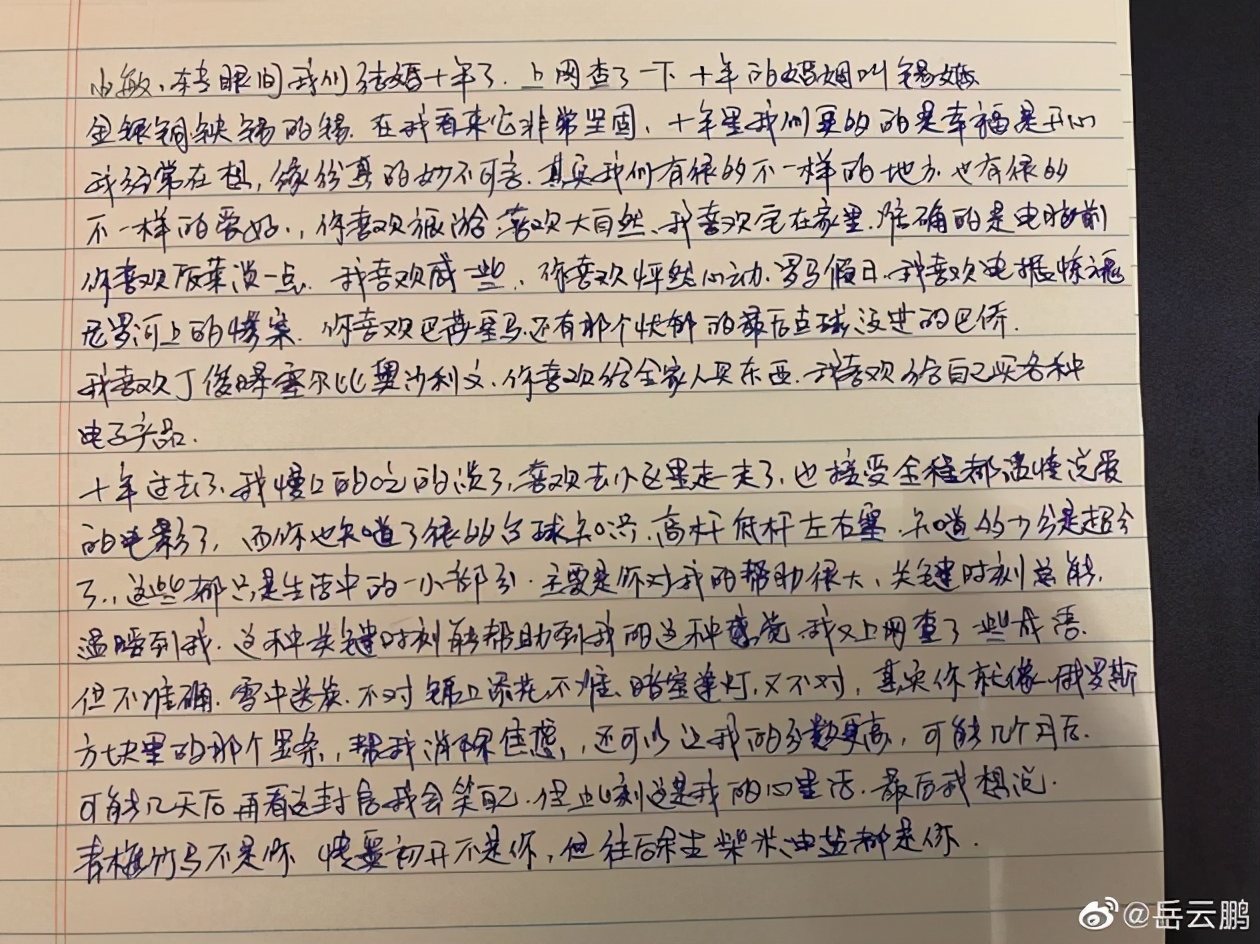 小敏、转眼间我们结婚十年了. 上网查了一下 十年的婚姻叫锡婚
金银铜铁锡的锡. 在我看来它非常坚固、十年里我们更多的是幸福是开心
我经常在想, 缘份真的妙不可言. 其实我们有很多不一样的地方. 也有很多
不一样的爱好., 你喜欢旅游 喜欢大自然、我喜欢宅在家里. 准确的是电脑前
你喜欢饭菜淡一点. 我喜欢咸一些、你喜欢怦然心动. 罗马假日. 我喜欢电锯惊魂
尼罗河上的惨案. 你喜欢巴萨皇马还有那个忧郁的最后点球没进的巴乔.
我喜欢丁俊晖塞尔比奥沙利文. 你喜欢给全家人买东西. 我喜欢给自己买各种
电子产品.
十年过去了. 我慢口的吃的淡了, 喜欢去小区里走一走了. 也接受全程都温情浪漫
的电影了, 而你也知道了很多台球知识. 高杆低杆左右塞. 知道的多少分是超分
了., 这些都只是生活中的一小部分. 主要是你对我的帮助很大、关键时刻总能
温暖到我. 这种关键时刻能帮助到我的这种感觉 我又上网查了些成语.
但不准确. 雪中送炭. 不对 锦上添花不准. 暗室逢灯. 又不对, 其实你就像俄罗斯
方块里的那个竖条,, 帮我消除焦虑,, 还可以让我的分数更高, 可能几个月后.
可能几天后 再看这封信我会笑自己. 但此刻这是我的心里话. 最后我想说.
青梅竹马不是你 情窦初开不是你, 但往后余生柴米油盐都是你.
@岳云鹏